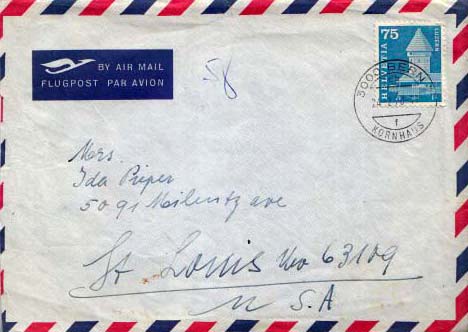 BY AIR MAIL
FLUGPOST PAR AVION
75
HELVETIA
LUZERN
3000 BERN
KORNHAUS
Mrs.
Ida Pieper
5091 Milentz ave
St Louis Mo 63109
U.S.A